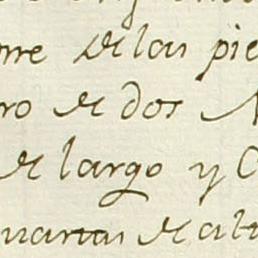 de las pie
ro de dos
de largo y
uartas de alt